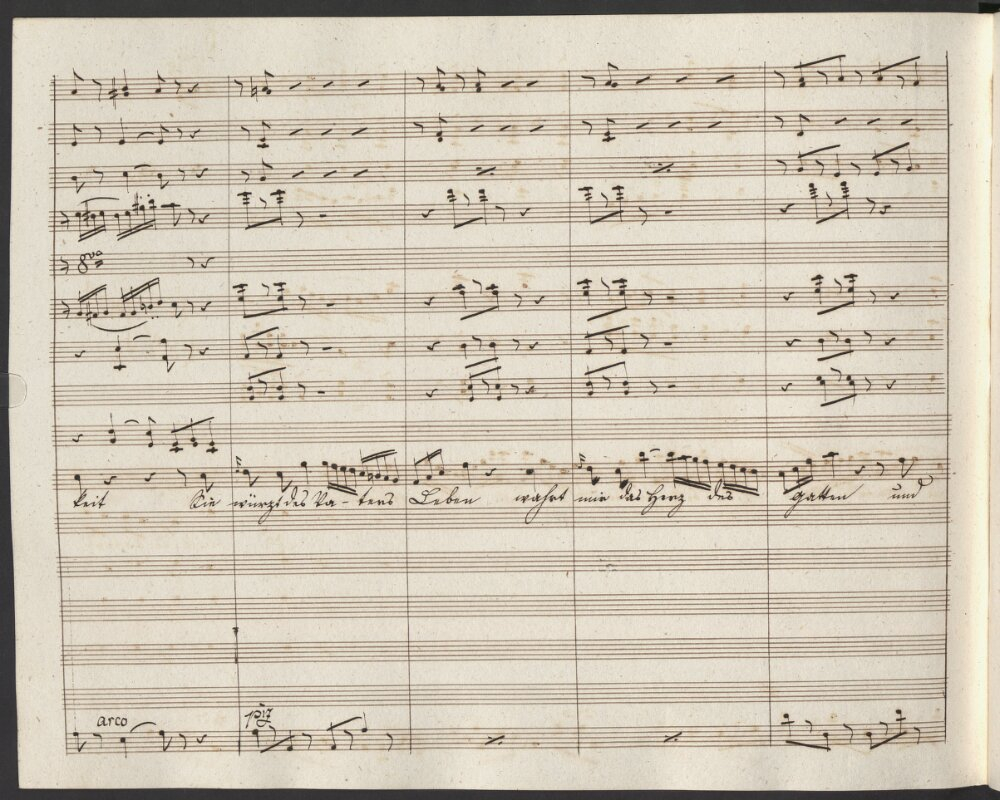 8va
keit Sie würzt des Va-ters Leben wahrt mir das Herz des Gatten und
arco piz